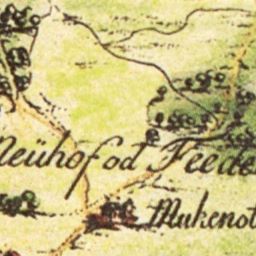 Neühof od Feede
Mukenot